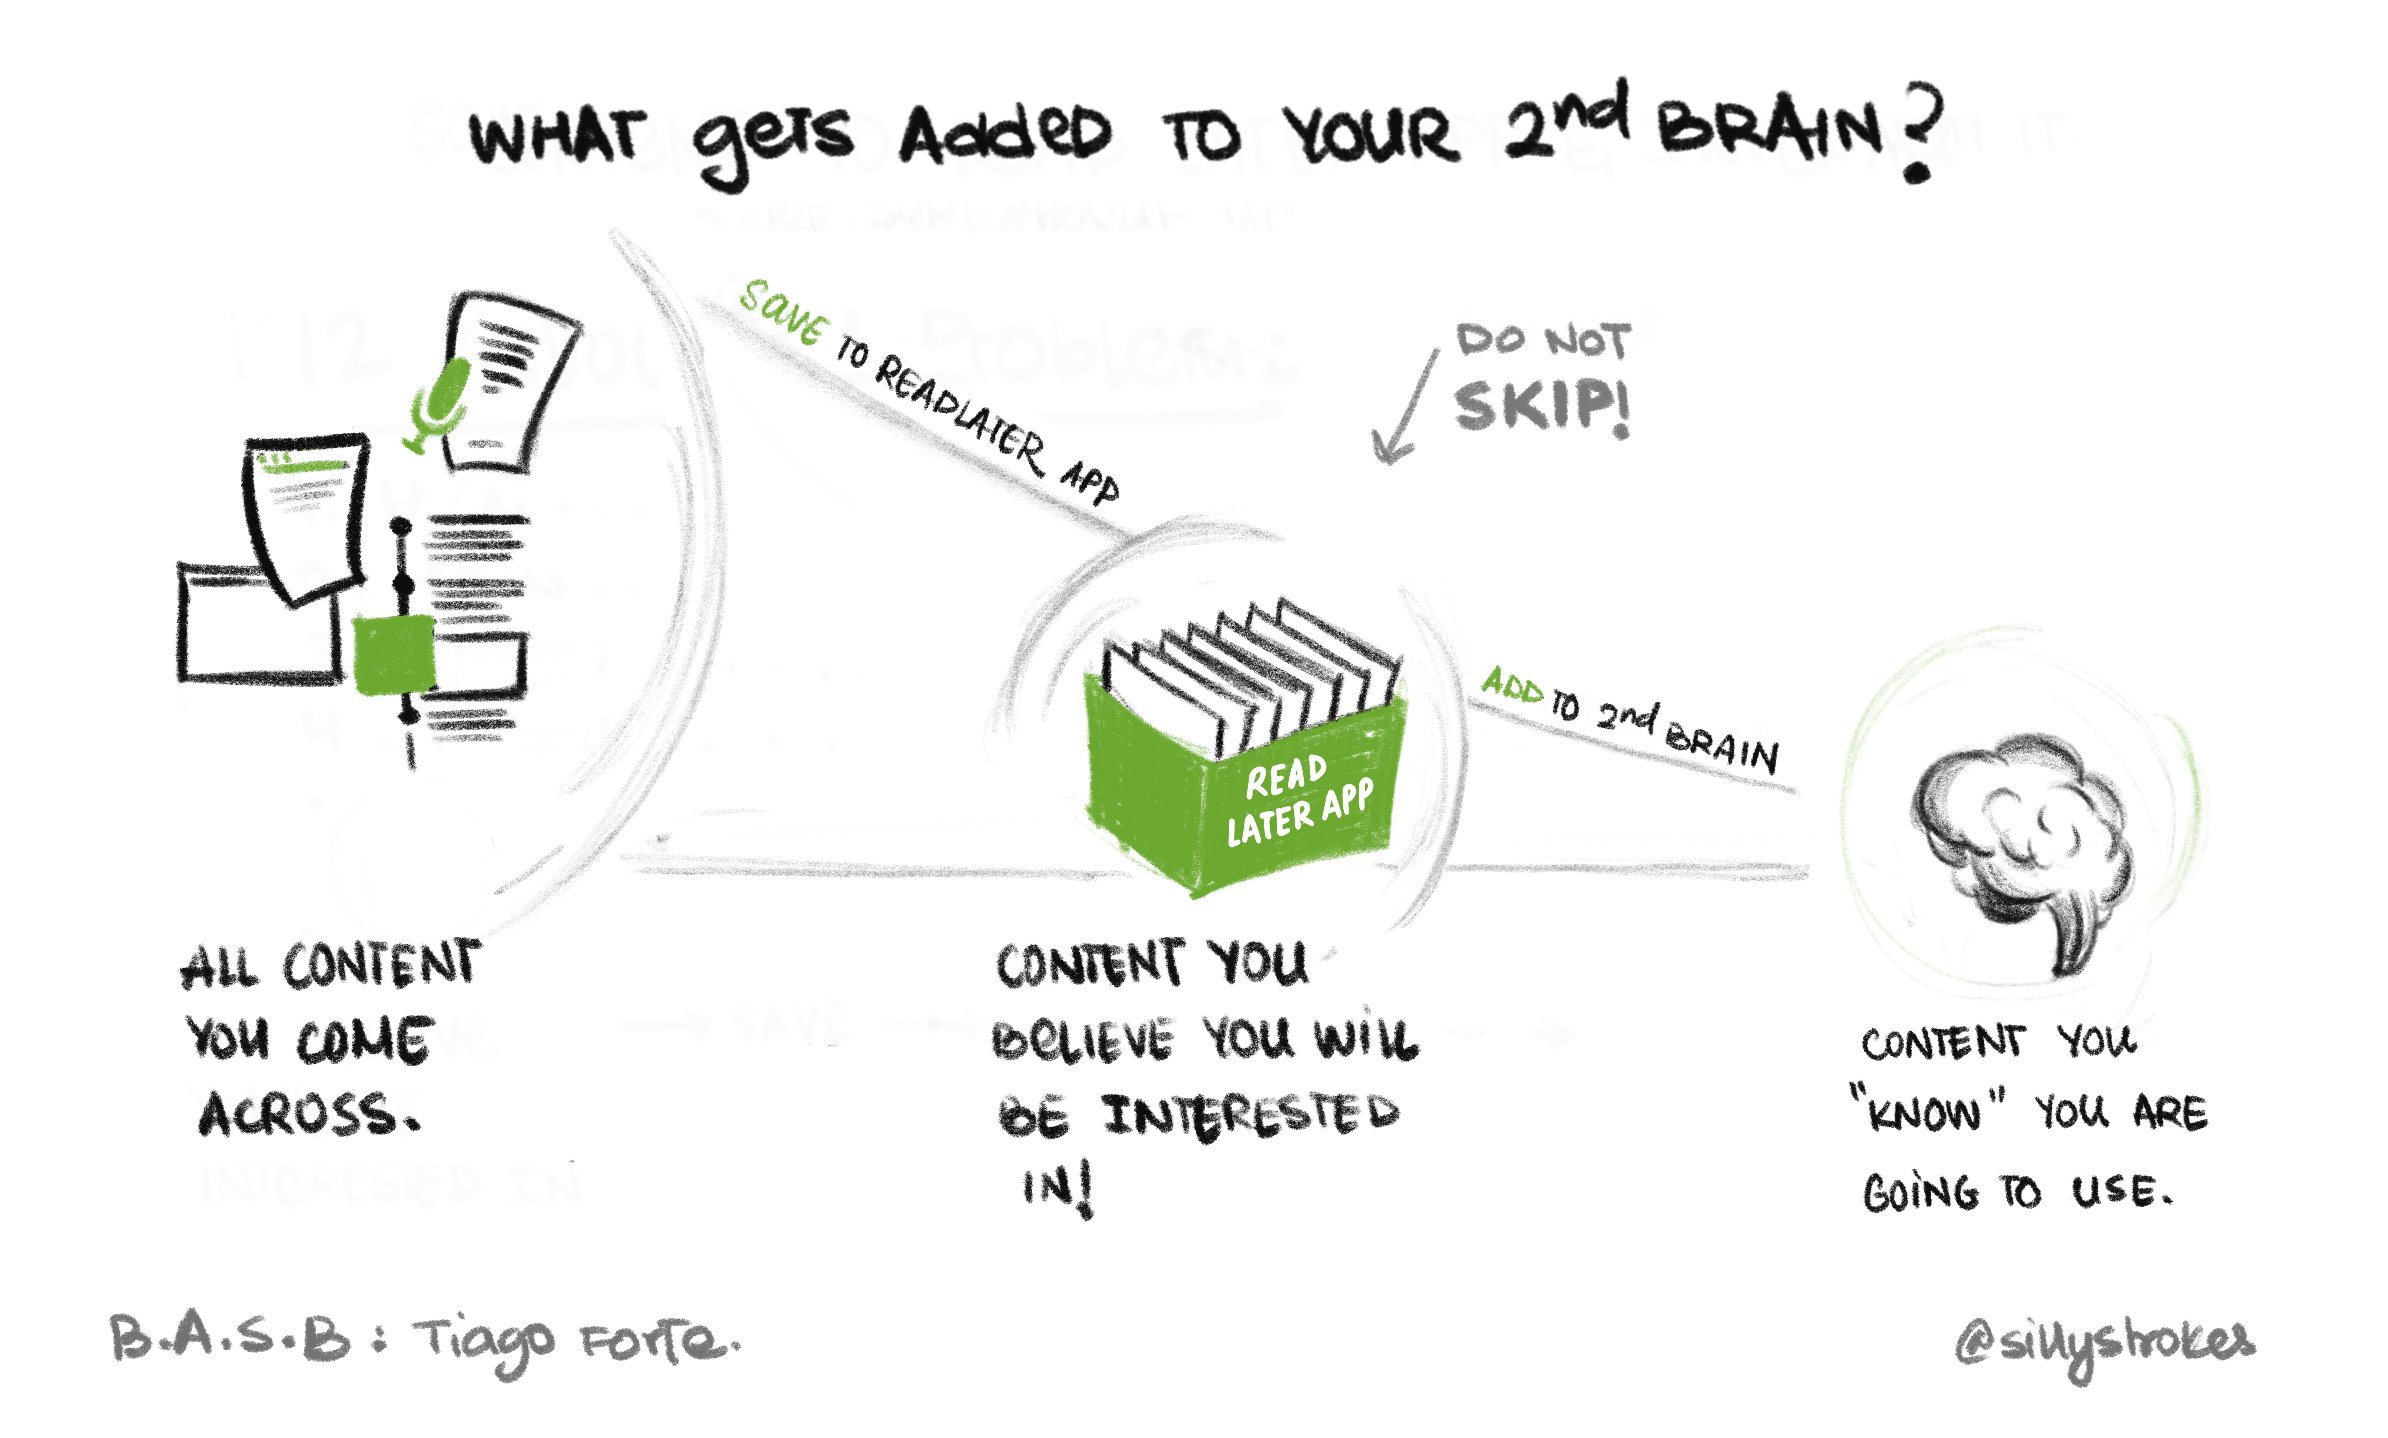 WHAT gets Added TO YOUR 2nd BRAIN?
SAVE TO READLATER APP
DO NOT
SKIP!
READ
LATER APP
ADD TO 2nd BRAIN
ALL CONTENT
YOU COME
ACROSS.
CONTENT YOU
BELIEVE YOU WILL
BE INTERESTED
IN!
CONTENT YOU
"KNOW" YOU ARE
GOING TO USE.
B.A.S.B : Tiago Forte.
@sillystrokes